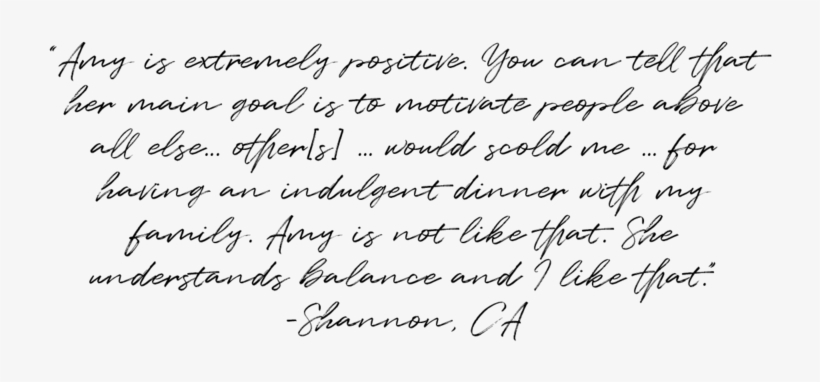 "Amy is extremely positive. You can tell that
her main goal is to motivate people above
all else... other[s] ... would scold me ... for
having an indulgent dinner with my
family. Amy is not like that. She
understands balance and I like that."
-Shannon, CA